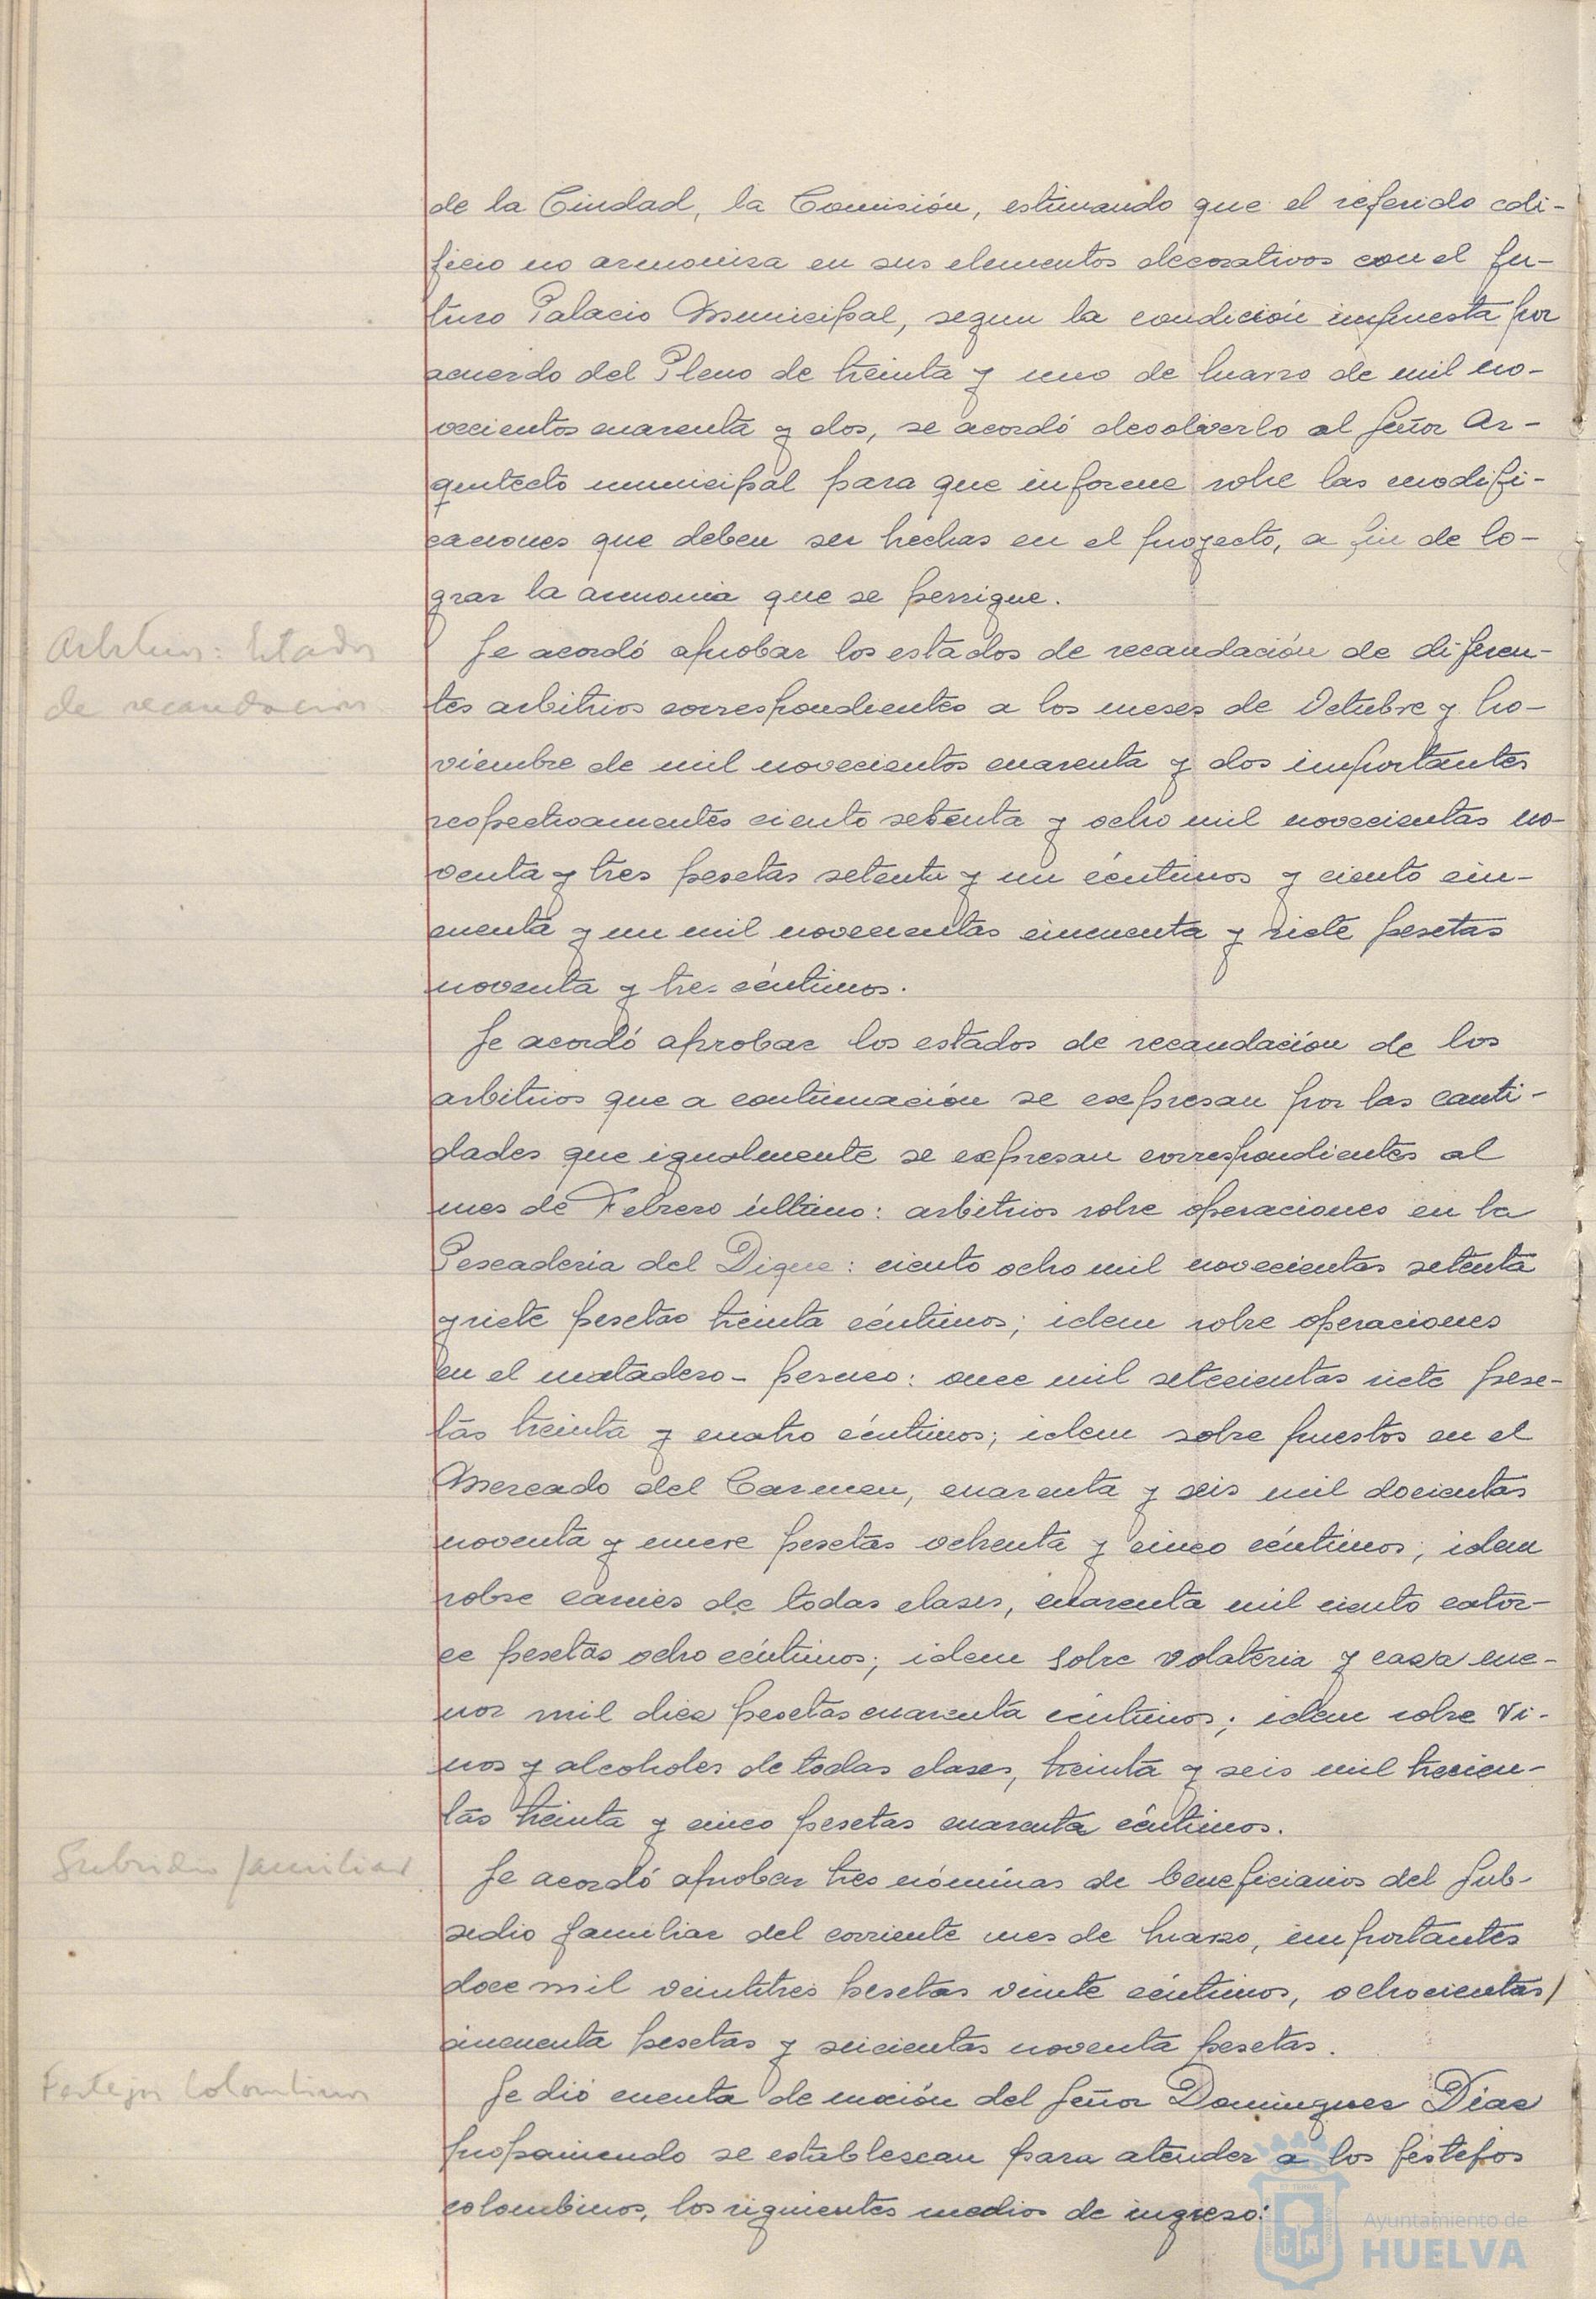 de la Ciudad, la Comisión, estimando que el referido edi-
ficio no armoniza en sus elementos decorativos con el fu-
turo Palacio Municipal, segun la condición impuesta por
acuerdo del Pleno de treinta y uno de Marzo de mil no-
vecientos cuarenta y dos, se acordó devolverlo al Señor Ar-
quitecto municipal para que informe sobre las modifi-
caciones que deben ser hechas en el proyecto, a fin de lo-
grar la armonia que se persigue.
Arbitrios: Estados
de recaudacion
Se acordó aprobar los estados de recaudación de diferen-
tes arbitrios correspondientes a los meses de Octubre y No-
viembre de mil novecientos cuarenta y dos importantes
respectivamentes ciento setenta y ocho mil novecientas no-
venta y tres pesetas setenta y un céntimos y ciento cin-
cuenta y un mil novecientas cincuenta y siete pesetas
noventa y tres céntimos.
Se acordó aprobar los estados de recaudación de los
arbitrios que a continuación se expresan por las canti-
dades que igualmente se expresan correspondientes al
mes de Febrero último: arbitrios sobre operaciones en la
Pescaderia del Dique: ciento ocho mil novecientas setenta
y siete pesetas treinta céntimos; idem sobre operaciones
en el matadero- perneo: once mil setecientas siete pese-
tas treinta y cuatro céntimos; idem sobre puestos en el
Mercado del Carmen, cuarenta y seis mil docientas
noventa y nueve pesetas ochenta y cinco céntimos; idem
sobre carnes de todas clases, cuarenta mil ciento cator-
ce pesetas ocho céntimos; idem sobre volateria y caza me-
nor mil diez pesetas cuarenta céntimos; idem sobre vi-
nos y alcoholes de todas clases, treinta y seis mil trecien-
tas treinta y cinco pesetas cuarenta céntimos.
Subsidio familiar
Se acordó aprobar tres nóminas de beneficiarios del Sub-
sidio familiar del corriente mes de Marzo, importantes
doce mil veintitres pesetas veinte céntimos, ochocientas
cincuenta pesetas y seicientas noventa pesetas.
Festejos Colombinos
Se dió cuenta de moción del Señor Dominguez Díaz
proponiendo se establezcan para atender a los festejos
colombinos, los siguientes medios de ingreso:
Ayuntamiento de
HUELVA